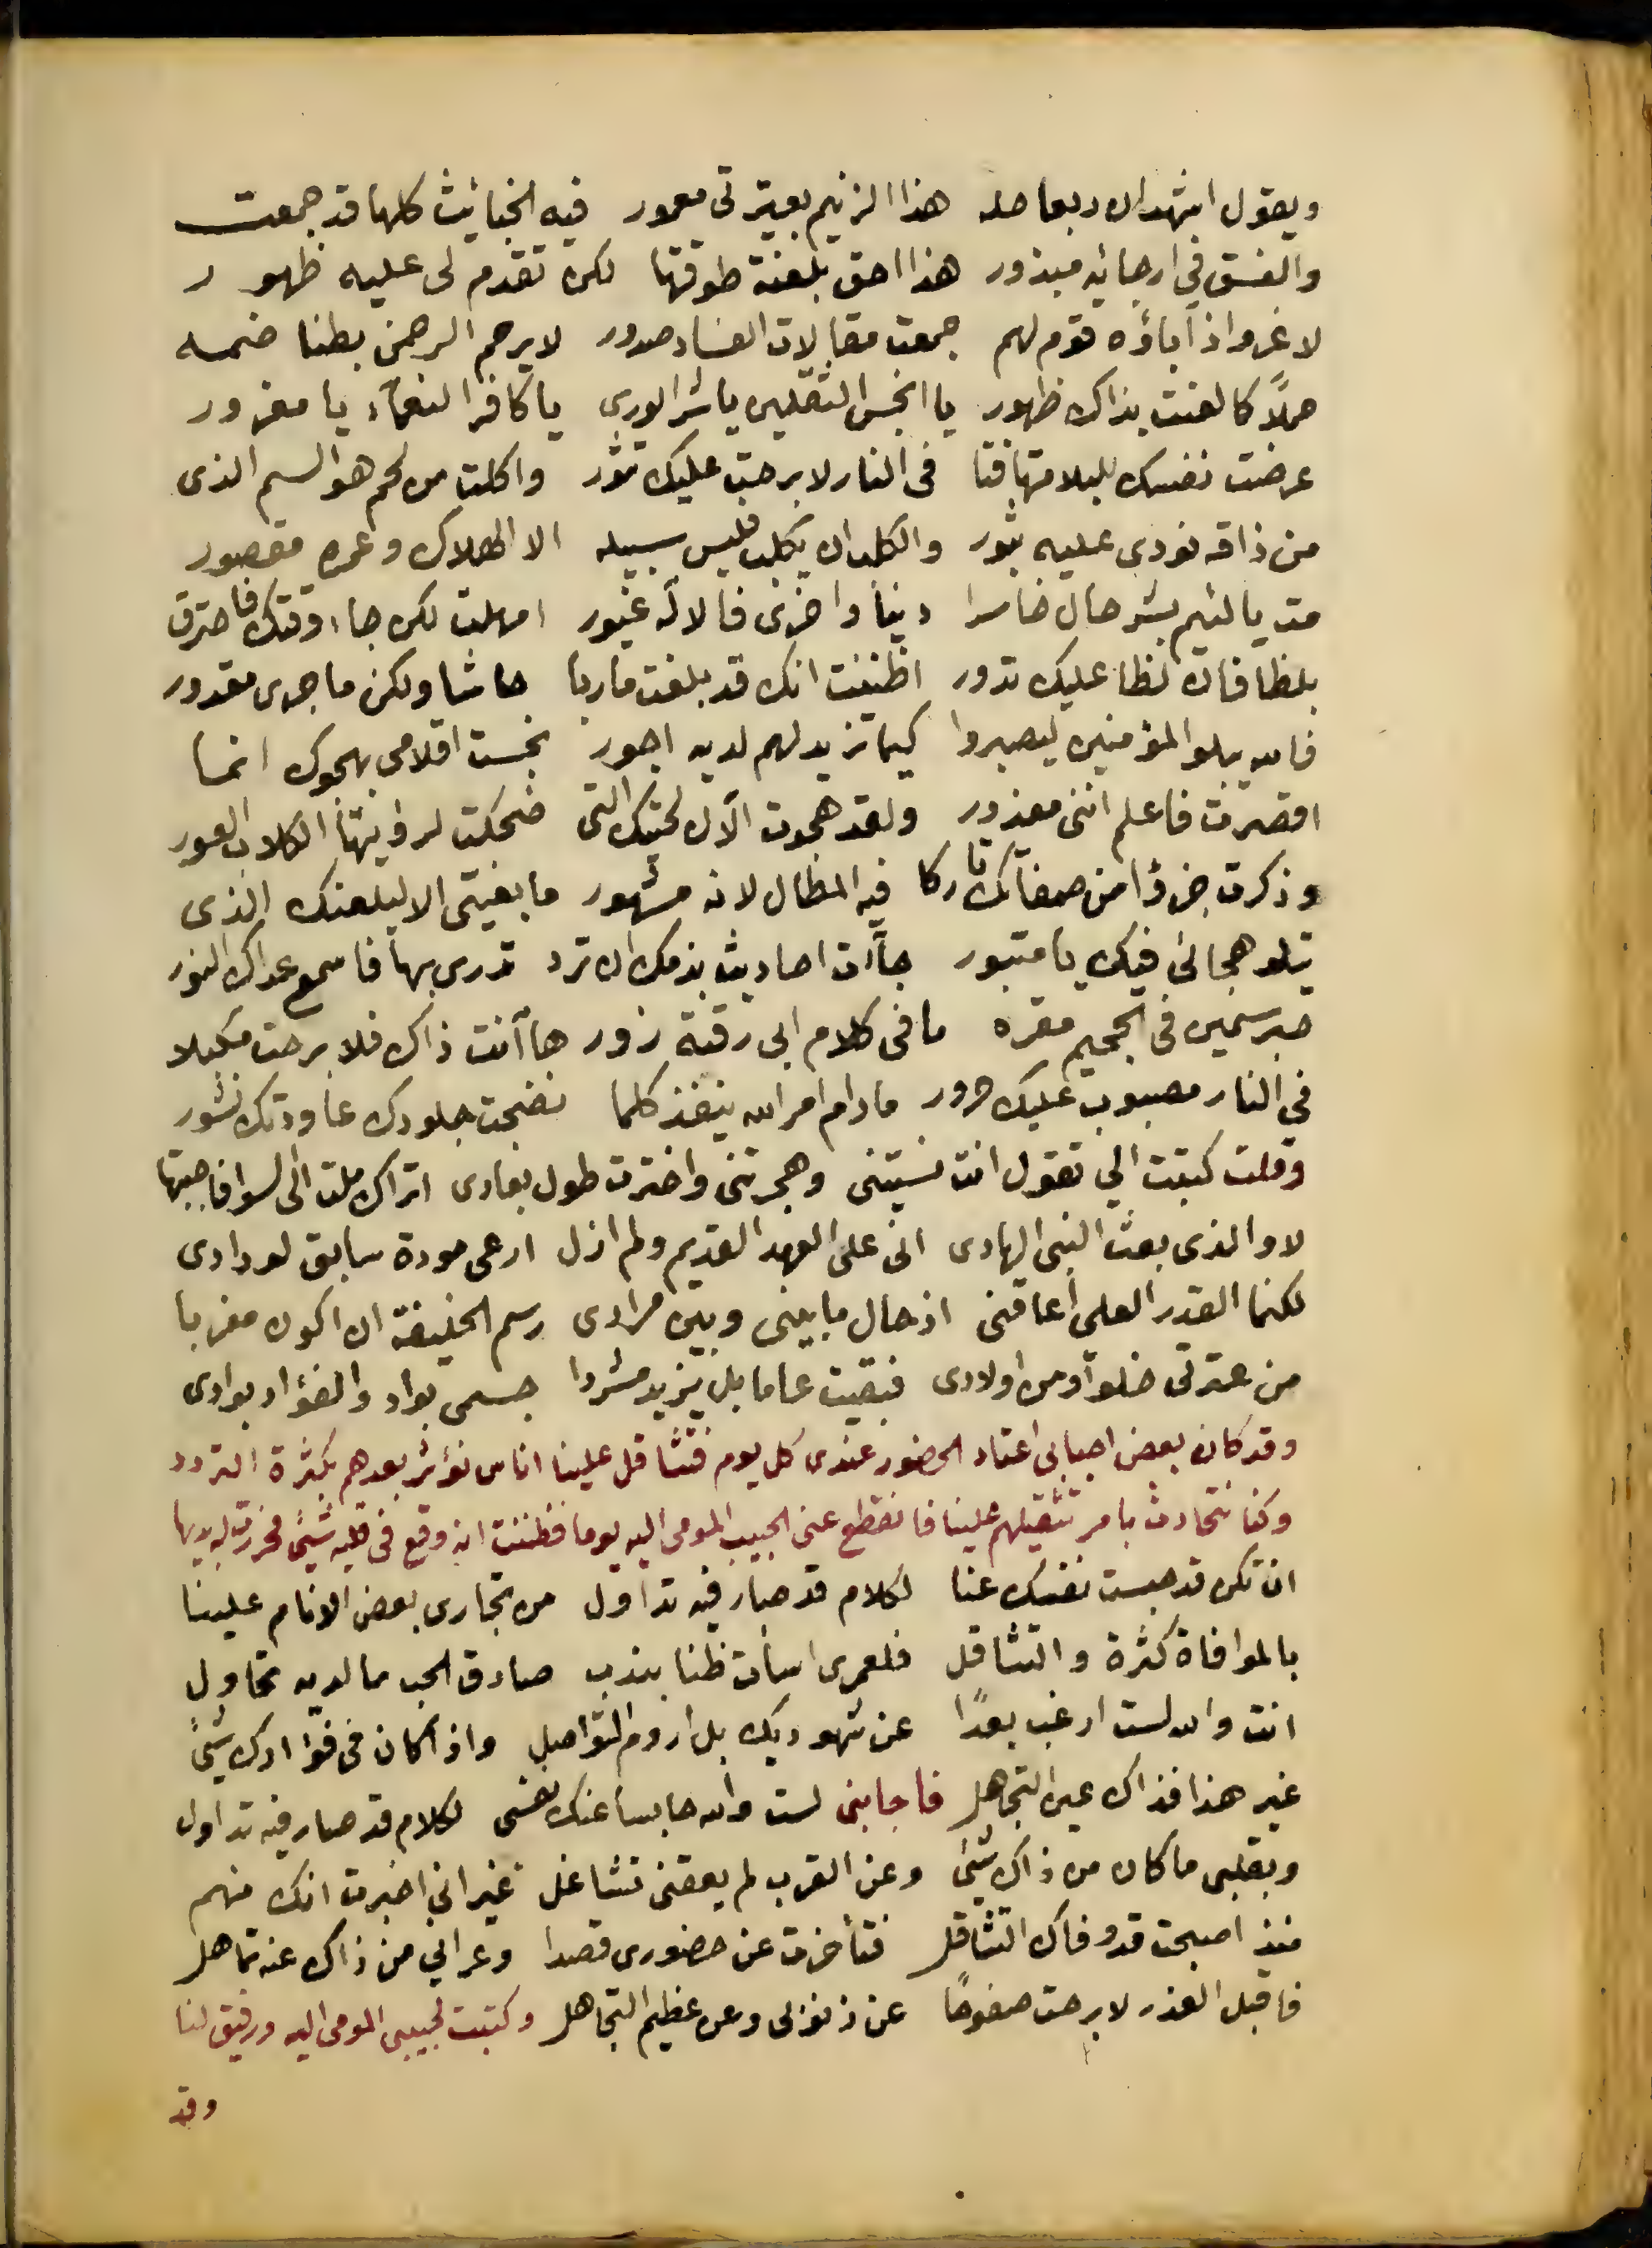 ويقول اشهد ان ربعا حله هذا الزنيم بعيرتي معمور فيه الخبائث كلها قد جمعت
والفسق في ارجائه مبذور هذا احق بلعنة طوقتها لكن تقدم لى عليه ظهور
لا غرو اذ آباؤه قوم لهم جمعت مقالات الفساد صدور لا يرحم الرحمن بطنا ضمه
حملاً كا لعنت بذاك ظهور يا انجس الثقلين يا شر الورى يا كافر النعمآء يا مغرور
عرضت نفسك للبلا متهافتا فى النار لا برحت عليك تثور واكلت من لحم هو السم الذى
من ذاقه نودى عليه ثبور والكلب ان يكلب فليس سبيله الا الهلاك وعمره مقصور
مت يا لئيم بشر حال خاسرا دنيا واخرى فالاله غيور امهلت لكن جاء وقتك فاحترق
بلظا فان لظا عليك تدور اظننت انك قد بلغت ماربا حاشا ولكن ما جرى مقدور
فالله يبلو المؤمنين ليصبروا كيما تزيد لهم لديه اجور نجست اقلامى بهجوك انما
اقصرت فاعلم اننى معذور ولقد هجوت الآن لحيتك التى ضحكت لرؤيتها الكلاب العور
وذكرت جزؤا من صفاتك تاركا فيه المطال لانه مشهور ما بغيتى الا ليلعنك الذى
يتلو هجائى فيك يا مثبور جآءت احاديث بذمك ان ترد تدرى بها فاسمع عداك النور
حبر سمين فى الجحيم مقره ما فى كلام ابى رقية زور هاآنت ذاك فلا برحت مكبلا
في النار مصبوب عليك حرور ما دام امر الله ينفذ كلما نضجت جلودك عاودتك نشور
وقلت كتبت الي تقول انت نسيتنى وهجرتنى واخترت طول بعادى اتراك ملت الى لسوا فاجبتها
لا والذى بعث النبى الهادى انى على العهد القديم ولم ازل ارعى مودة سابق لودادى
لكنما القدر العلى اعاقنى اذ حال ما بينى وبين مرادى رسم الخليفة ان اكون مغربا
من عترتى خلوا ومن اولادى فبقيت عاما بل يزيد مشردا جسمى بواد والفؤاد بوادى
وقد كان بعض احبابى اعتاد الحضور عندى كل يوم فتثاقل علينا اناس نؤثر بعدهم بكثرة التردد
وكنا نتحادث بامر تثقيلهم علينا فانقطع عنى الحبيب المومى اليه يوما فظننت انه وقع فى قلبه شيئ فحررت له بديها
ان تكن قد حبست نفسك عنا لكلام قد صار فيه تداول من تجارى بعض الانام علينا
بالموافاة كثرة والتثاقل فلعمرى اسأت ظنا بندب صادق الحب ما لديه تحاول
انت والله لست ارغب بعدًا عن شهوديك بل اروم التواصل واذا كان فى فؤادك شيئ
غير هذا فذاك عين التجاهل فاجابنى لست والله حابسا عنك نفسى لكلام قد صار فيه تداول
وبقلبى ما كان من ذاك شيئ وعن القرب لم يعقنى تشاغل غير اني اخبرت انك منهم
منذ اصبحت قد وفاك التثاقل فتأخرت عن حضورى قصدا وعرانى من ذاك عنه تماهل
فاقبل العذر لا برحت صفوحًا عن ذنوبى وعن عظيم التجاهل وكتبت لحبيبى المومى اليه ورفيق لنا
وقد